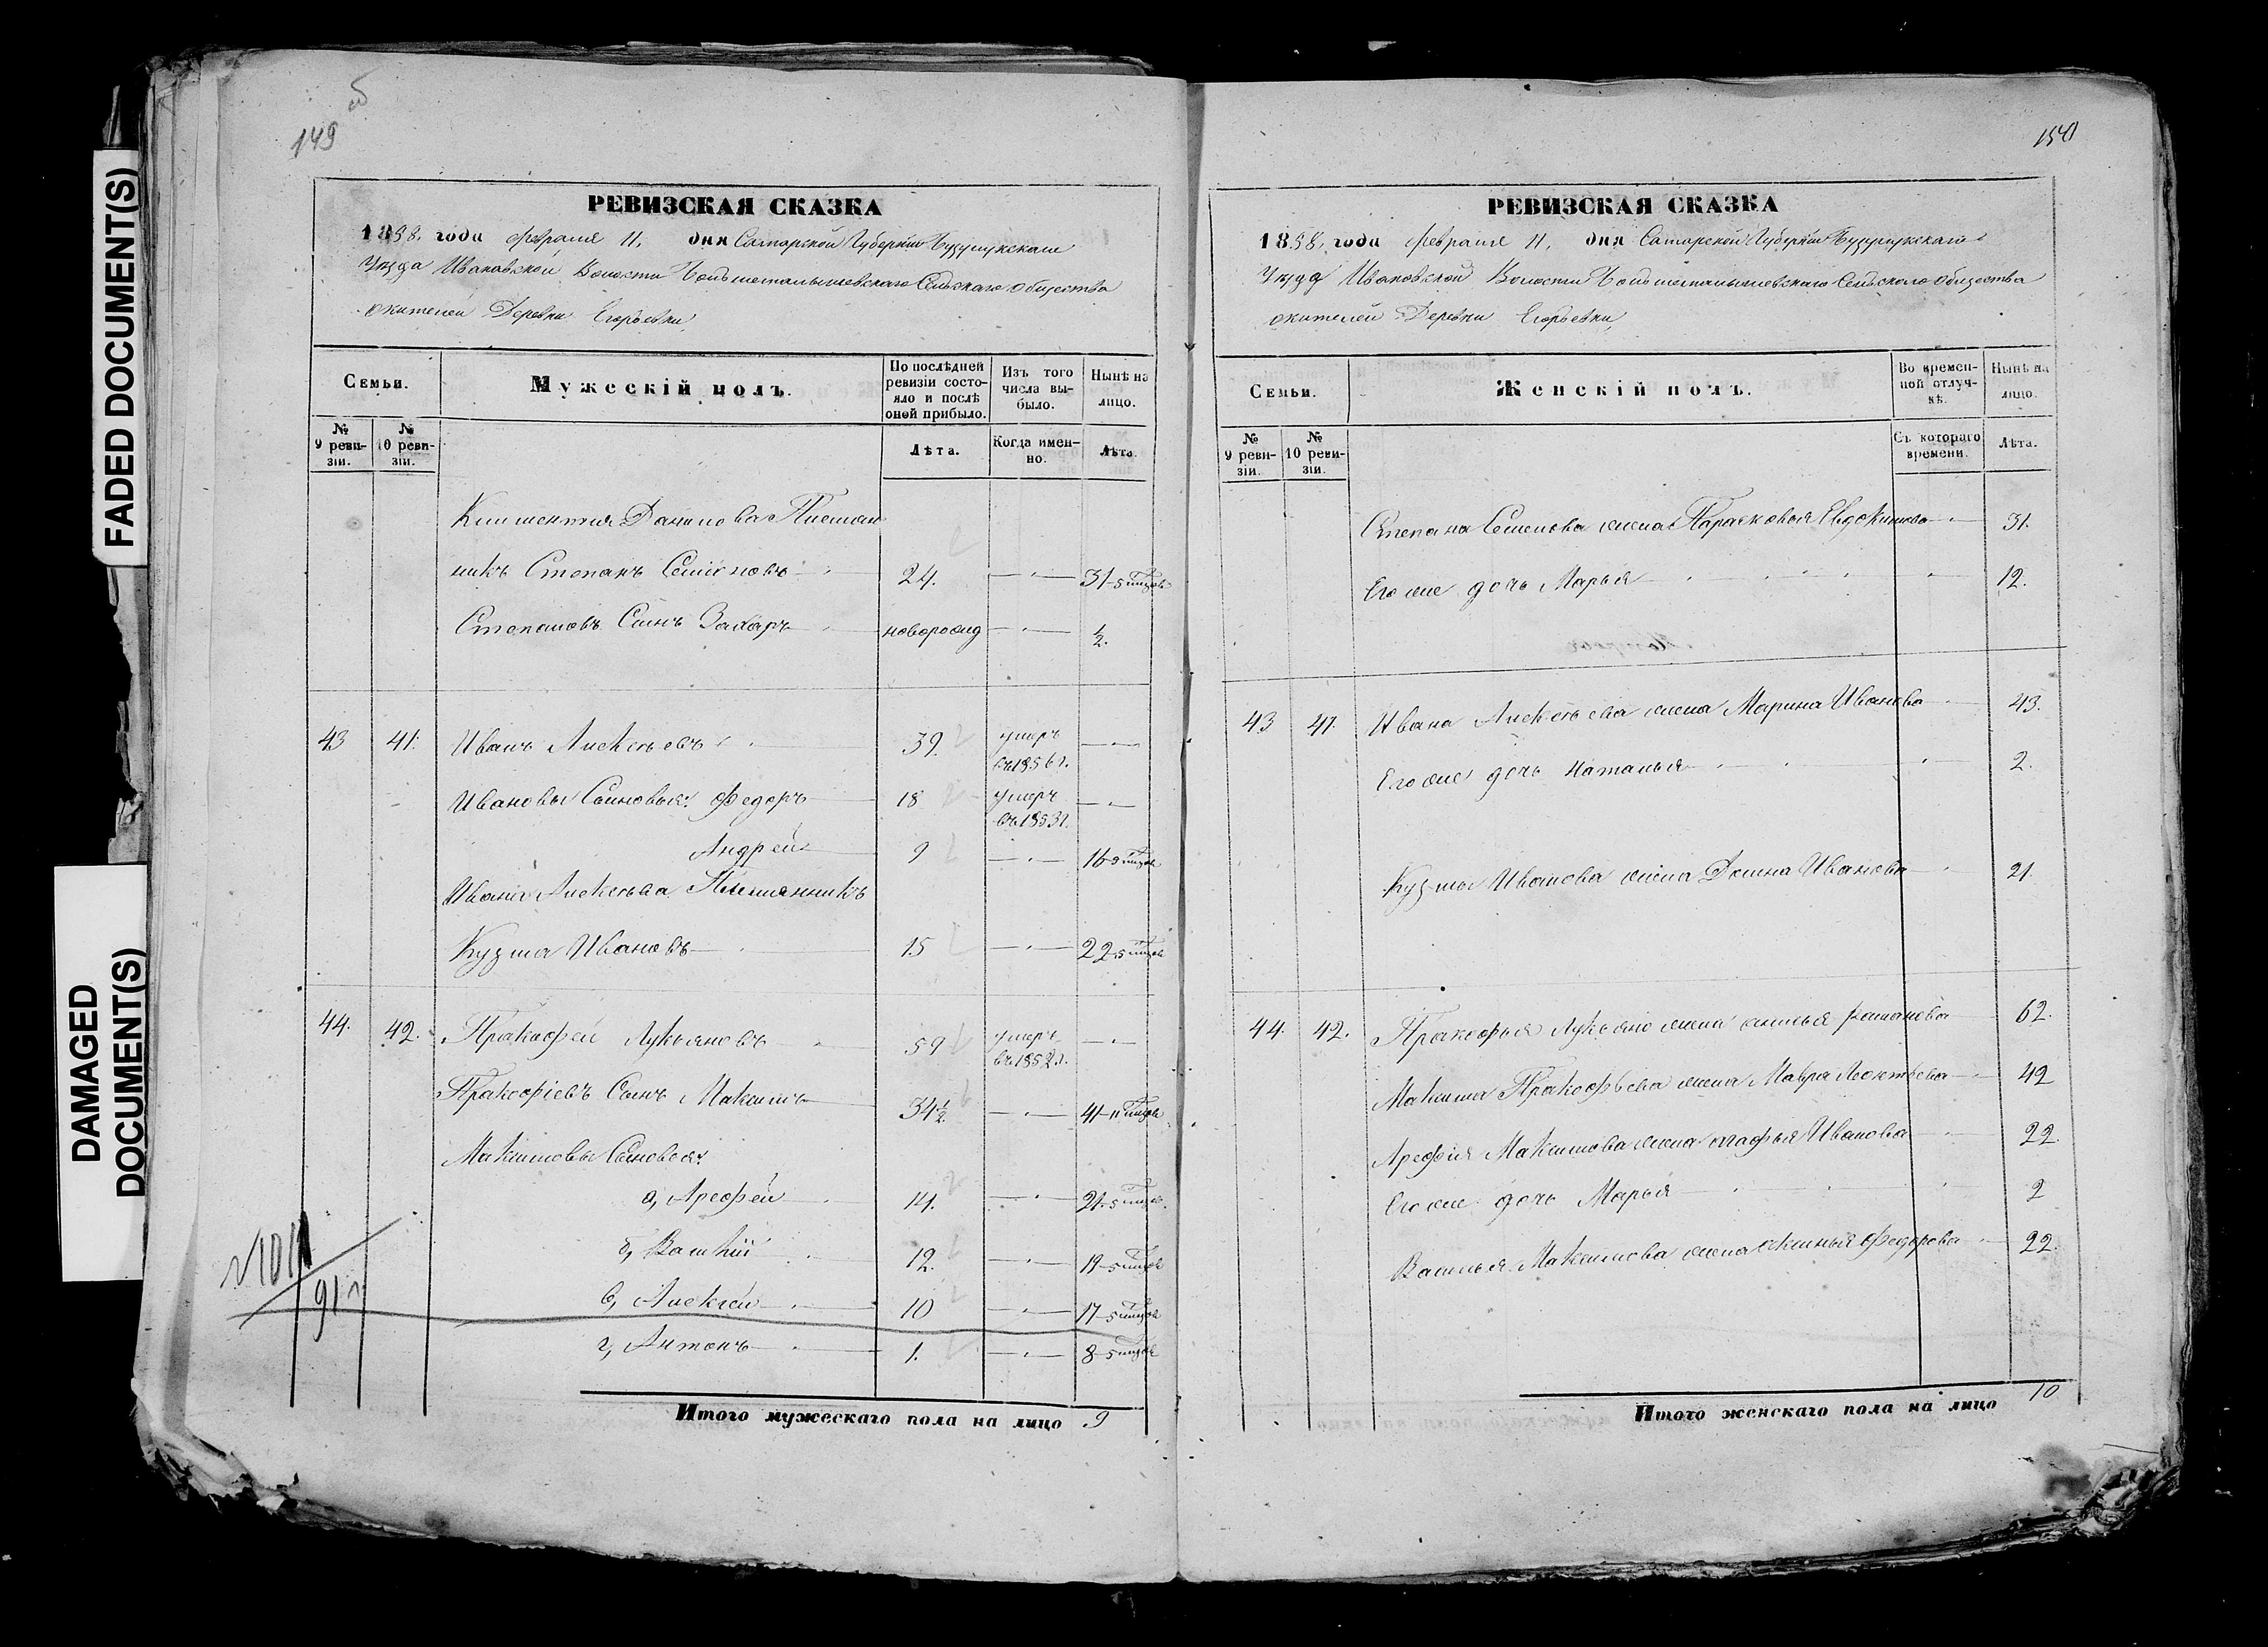 FADED DOCUMENT(S)
DAMAGED
DOCUMENT(S)
149
об
РЕВИЗСКАЯ СКАЗКА
1858. года февраля 11, дня Самарской Губернии Бузулукскаго
Уезда Ивановской Волости Сельскаго Общества
жителей Деревни Егорьевки,
Семьи.
Мужескій полъ.
По послѣдней
ревизіи состо-
яло и послѣ
оной прибыло.
Изъ того
числа вы-
было.
Нынѣ на
лицо.
№
9 реви-
зіи.
№
10 реви-
зіи.
Лѣта.
Когда имен-
но.
Лѣта.
Климентия Данилова Племян
никъ Степанъ Семеновъ 24. 31-5
Степановъ Сынъ Захаръ новорожд ½.
43 41. Иванъ Алексѣевъ 39. умеръ въ 1856 г.
Ивановы Сыновья: Федоръ 18 умеръ въ 1853 г.
Андрей 9 16-5
Ивана Алексѣева Племянникъ
Кузма Ивановъ 15 22-5
44. 42. Пракофей Лукьяновъ 59 умеръ въ 1852 г.
Пракофіевъ Сынъ Максимъ 34½. 41-11
Максимовы Сыновья:
а, Арефей 14. 21-5
б, Василій 12. 19-5
в, Алексѣй 10 17-5
г, Антонъ 1. 8-5
91 г
Итого мужескаго пола на лицо 9
150
РЕВИЗСКАЯ СКАЗКА
1858, года февраля 11, дня Самарской Губернии Бузулукскаго
Уезда Ивановской Волости Сельскаго Общества
жителей Деревни Егорьевки,
Семьи.
Женскій полъ.
Во времен-
ной отлуч-
кѣ.
Нынѣ на
лицо.
№
9 реви-
зіи.
№
10 реви-
зіи.
Съ котораго
времени.
Лѣта.
Степана Семенова жена Парасковья Евдокимова 31.
Его же дочь Марья 12.
43 41. Ивана Алексѣева жена Марина Иванова 43.
Его же дочь Наталья 2.
Кузмы Иванова жена Домна Иванова 21.
44. 42. Пракофья Лукьяно жена 62.
Максима Пракофьева жена Мавра Леонтьева 42
Арефия Максимова жена агафья Иванова 22.
Его же дочь Марья 2
Василья Максимова жена Федорова 22.
Итого женскаго пола на лицо 10